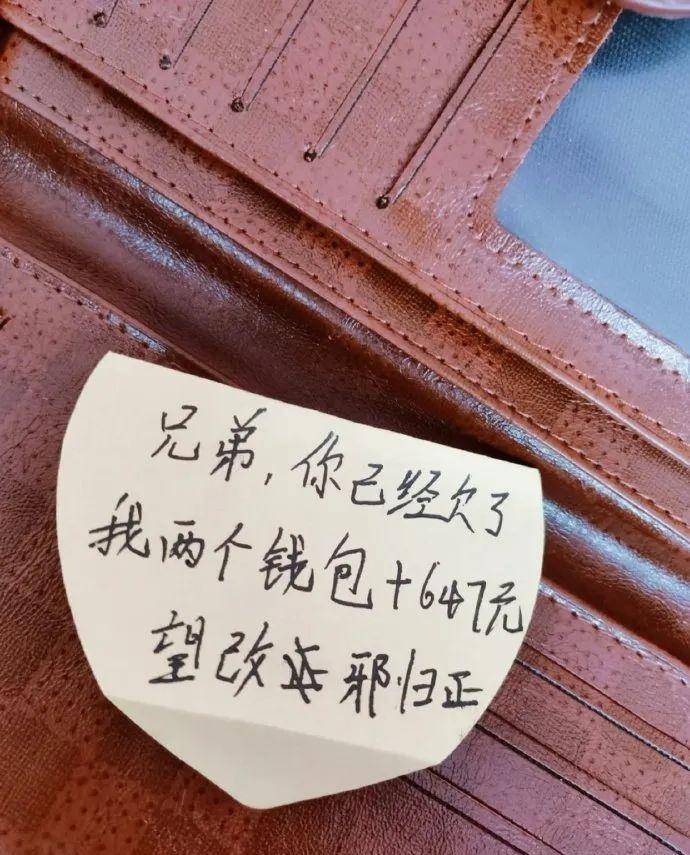 兄弟，你已经欠了
我两个钱包+647元
望改邪归正